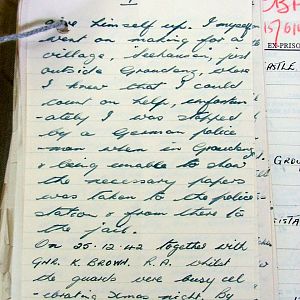 give himself up. I myself
went on making for a
village, just
outside Graudenz, where
I knew that I could
count on help, unfortun
-ately I was stopped
by a German police
-man when in Graudenz
& being unable to show
the necessary papers
was taken to the police
station & from there to
the jail.
On 25.12.42 together with
GNR. K. BROWN. R.A. whilst
the guards were busy cel
-ebrating Xmas night. By
EX-PRISO